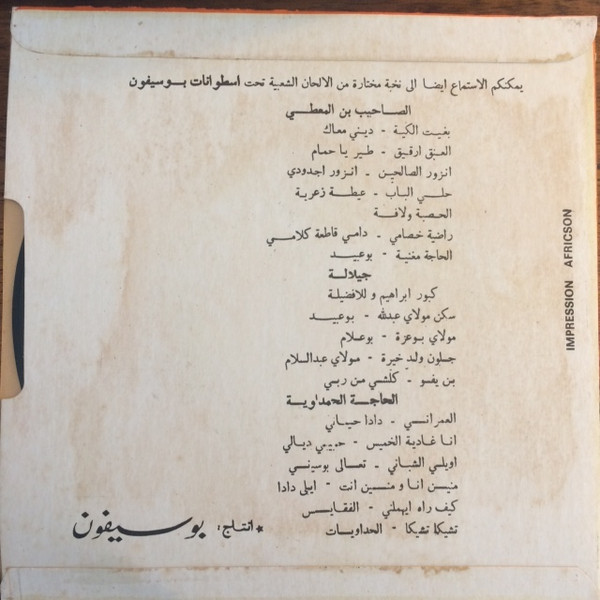 يمكنكم الاستماع ايضا الى نخبة مختارة من الالحان الشعبية تحت اسطوانات بوسيفون
الصاحيب بن المعطي
بغيت الكية - ديني معاك
العنق ارقيق - طير يا حمام
انزور الصالحين - انزور اجدودي
حلي الباب - عيطة زعرية
الحصبة ولافة
راضية خصامي - دامي قاطعة كلامي
الحاجة مغنية - بوعبيد
جيلالة
كبور ابراهيم و للافضيلة
سكن مولاي عبدلله - بوعبيد
مولاي بوعزة - بوعلام
جلون ولد خيرة - مولاي عبدالسلام
بن يفو - كلشي من ربي
الحاجة الحمداوية
العمراني - دادا حياني
انا غادية الخميس - حبيبي ديالي
اويلي الشباني - تعالى بوسيني
منين انا و منين انت - ايلى دادا
كيف راه ايهملني - الفقايس
تشيكا تشيكا - الحداويات
* انتاج: بوسيفون
IMPRESSION AFRICSON